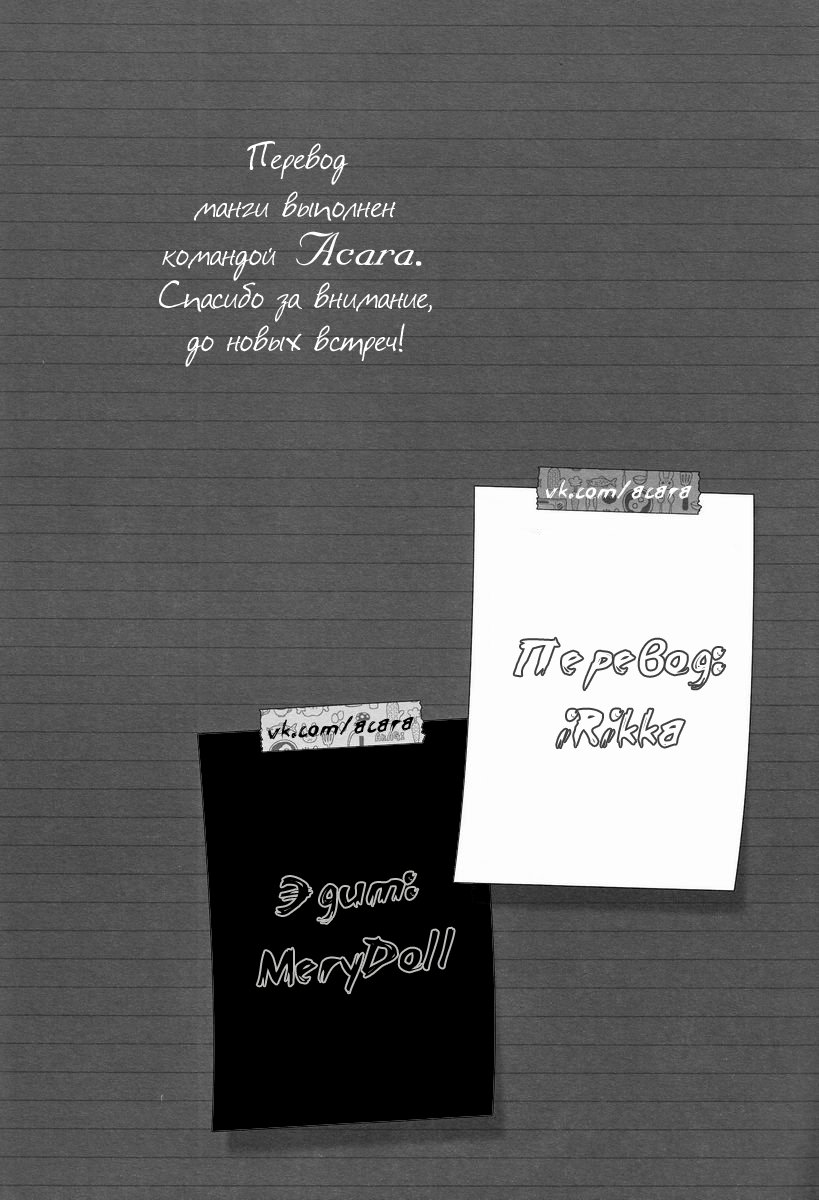 Перевод
манги выполнен
командой Acara.
Спасибо за внимание,
до новых встреч!
vk.com/acara
Перевод:
iRikka
vk.com/acara
Эдит:
MeryDoll